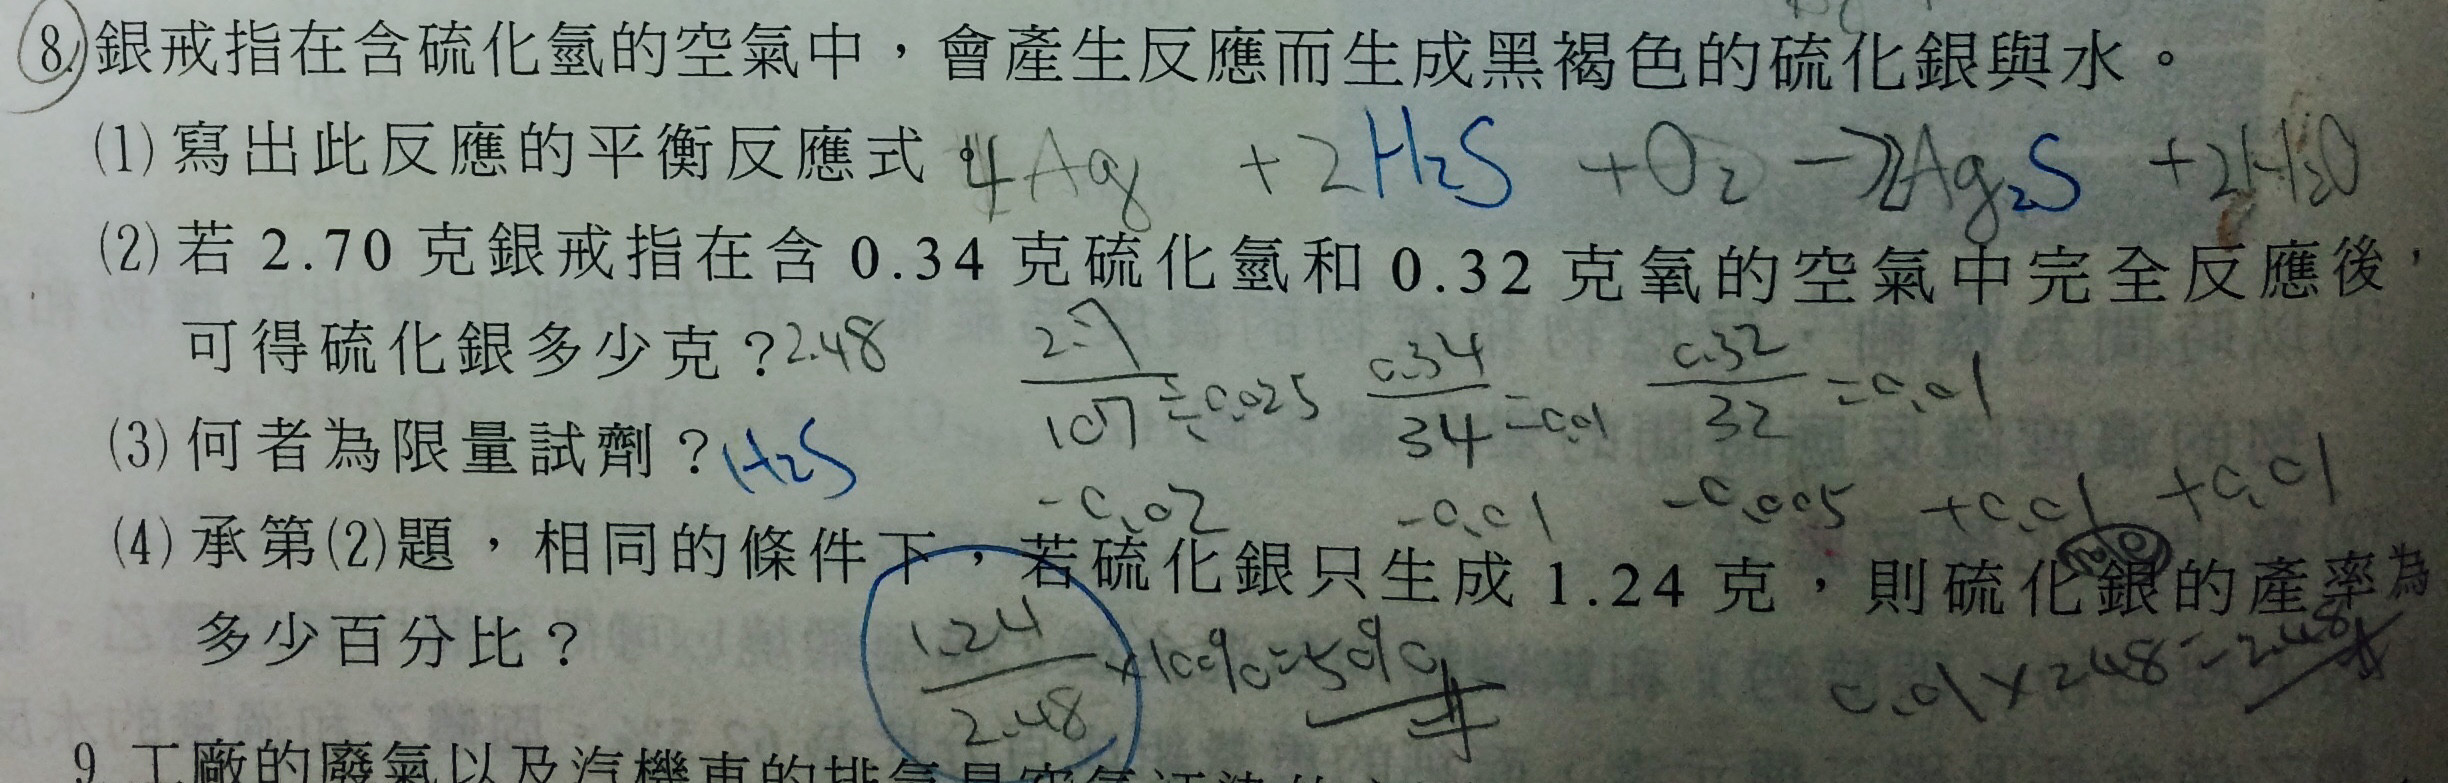 8.銀戒指在含硫化氫的空氣中，會產生反應而生成黑褐色的硫化銀與水。
(1)寫出此反應的平衡反應式。4Ag + 2H2S + O2 → 2Ag2S + 2H2O
(2)若 2.70 克銀戒指在含 0.34 克硫化氫和 0.32 克氧的空氣中完全反應後，
可得硫化銀多少克？2.48
2.7/107≒0.025 0.34/34=0.01 0.32/32=0.01
(3)何者為限量試劑？H2S
-0.02 -0.01 -0.005 +0.01 +0.01
(4)承第(2)題，相同的條件下，若硫化銀只生成 1.24 克，則硫化銀的產率為
多少百分比？
1.24/2.48×100%=50%
0.01×248=2.48
9.工廠的廢氣以及汽機車的排氣是空氣